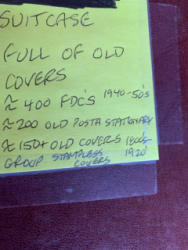 SUITCASE
FULL OF OLD
COVERS
≈ 400 FDC'S 1940-50'S
≈ 200 OLD POSTA STATIONARY
≈ 150+ OLD COVERS 1800'S
GROUP STAMPLESS 1920
COVERS